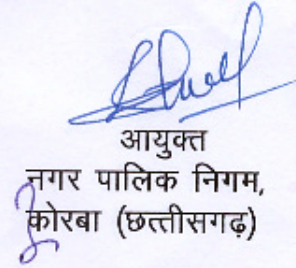 आयुक्त
नगर पालिक निगम,
कोरबा (छत्तीसगढ़)